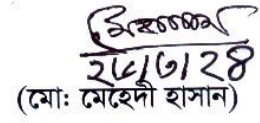 ২৮/৭/২৪
(মো: মেহেদী হাসান)